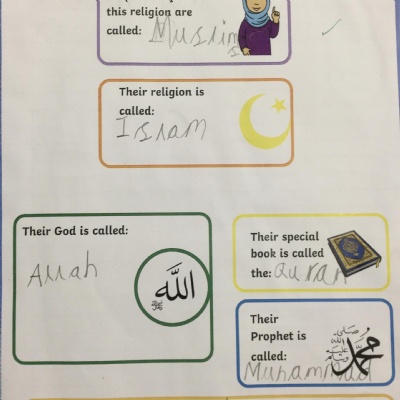 this religion are
called: Muslims
Their religion is
called:
Islam
Their God is called:
Allah
الله
Their special
book is called
the: Quran
Their
Prophet is
called:
محمد
صلى الله عليه وسلم
Muhammad